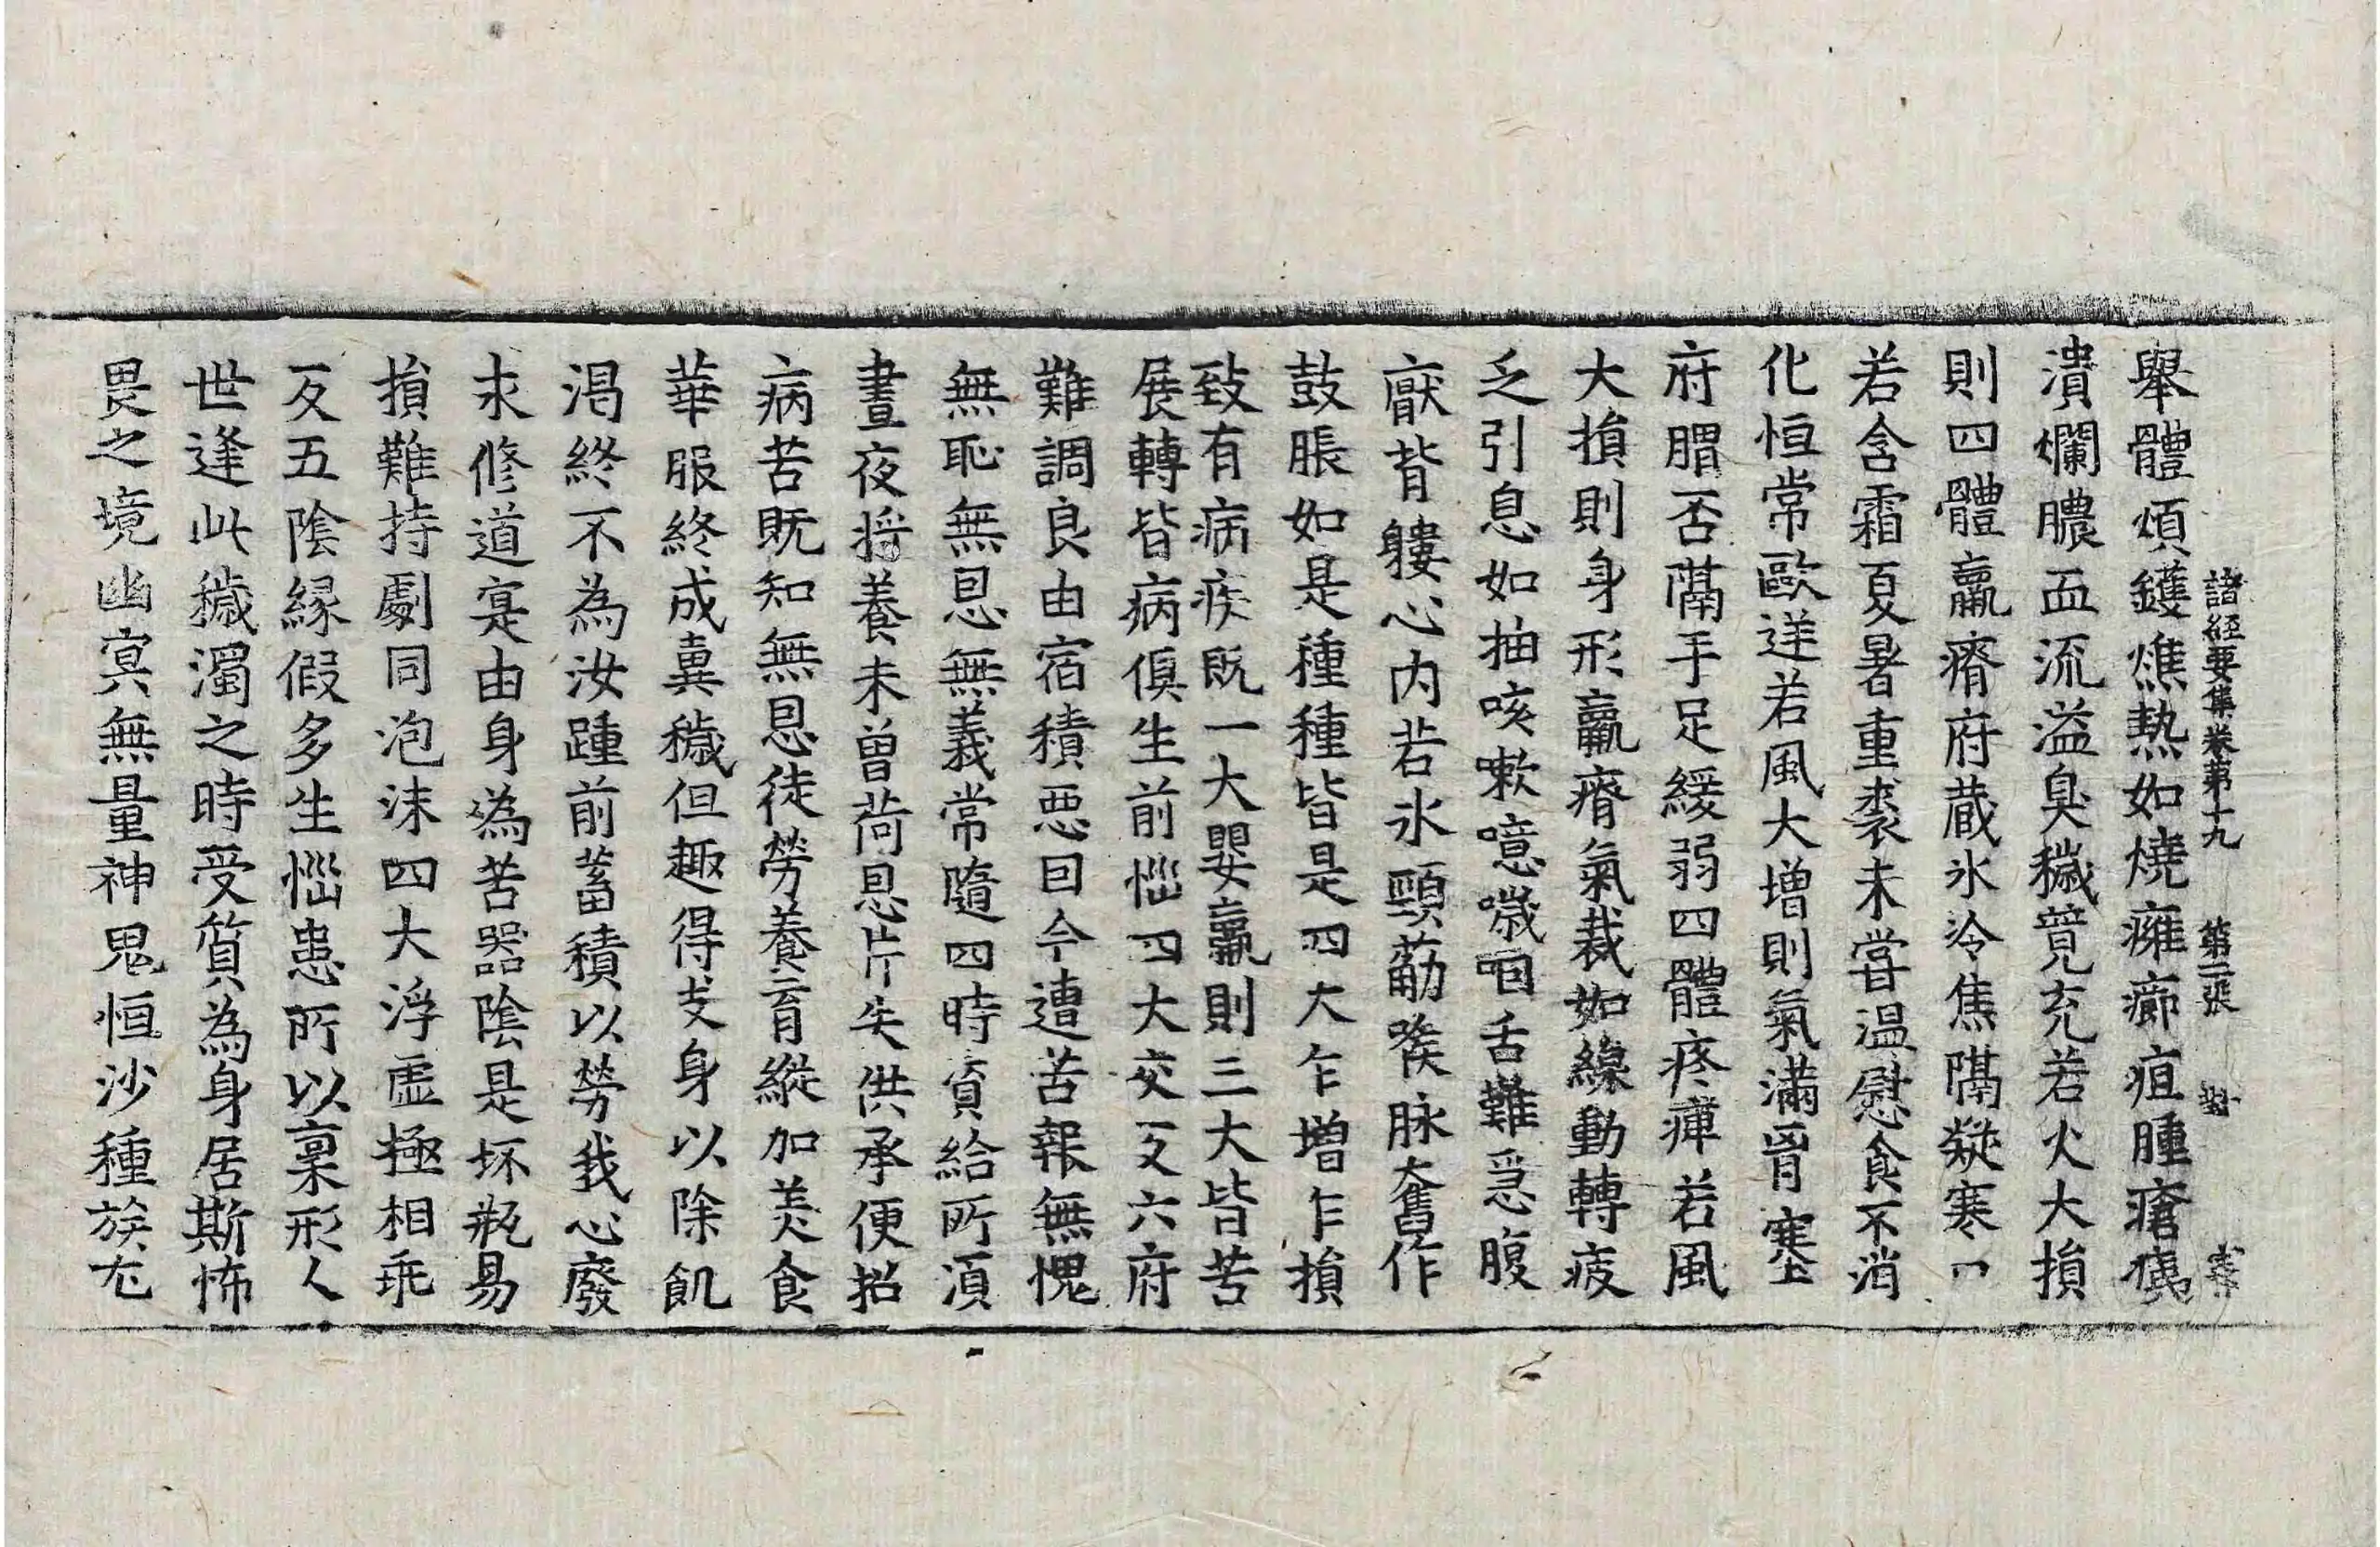 諸經要集卷第十九　第二張　對
舉體煩鑊燋熱如燒癰癤疽腫瘡痍
潰爛膿血流溢臭穢競充若火大損
則四體羸瘠府蔵氷冷焦隔凝寒口
若含霜夏暑重裘未甞温慰食不消
化恒常歐逆若風大增則氣滿胷塞
府胃否隔手足緩弱四體疼痺若風
大損則身形羸瘠氣裁如線動轉疲
乏引息如抽咳嗽噫噦咽舌難急腹
厭背僂心内若氷頸筋喉脉奮作
鼓脹如是種種皆是四大乍增乍損
致有病疾既一大嬰羸則三大皆苦
展轉皆病俱生前惱四大交反六府
難調良由宿積惡因今遭苦報無愧
無恥無恩無義常隨四時資給所須
晝夜將養未曽荷恩片失供承便招
病苦既知無恩徒勞養育縱加美食
華服終成糞穢但趣得支身以除飢
渴終不為汝踵前蓄積以勞我心廢
求修道寔由身為苦器陰是坏瓶易
損難持劇同泡沫四大浮虛極相乖
反五陰緣假多生惱患所以稟形人
世逢此穢濁之時受質為身居斯怖
畏之境幽冥無量神鬼恒沙種族尤